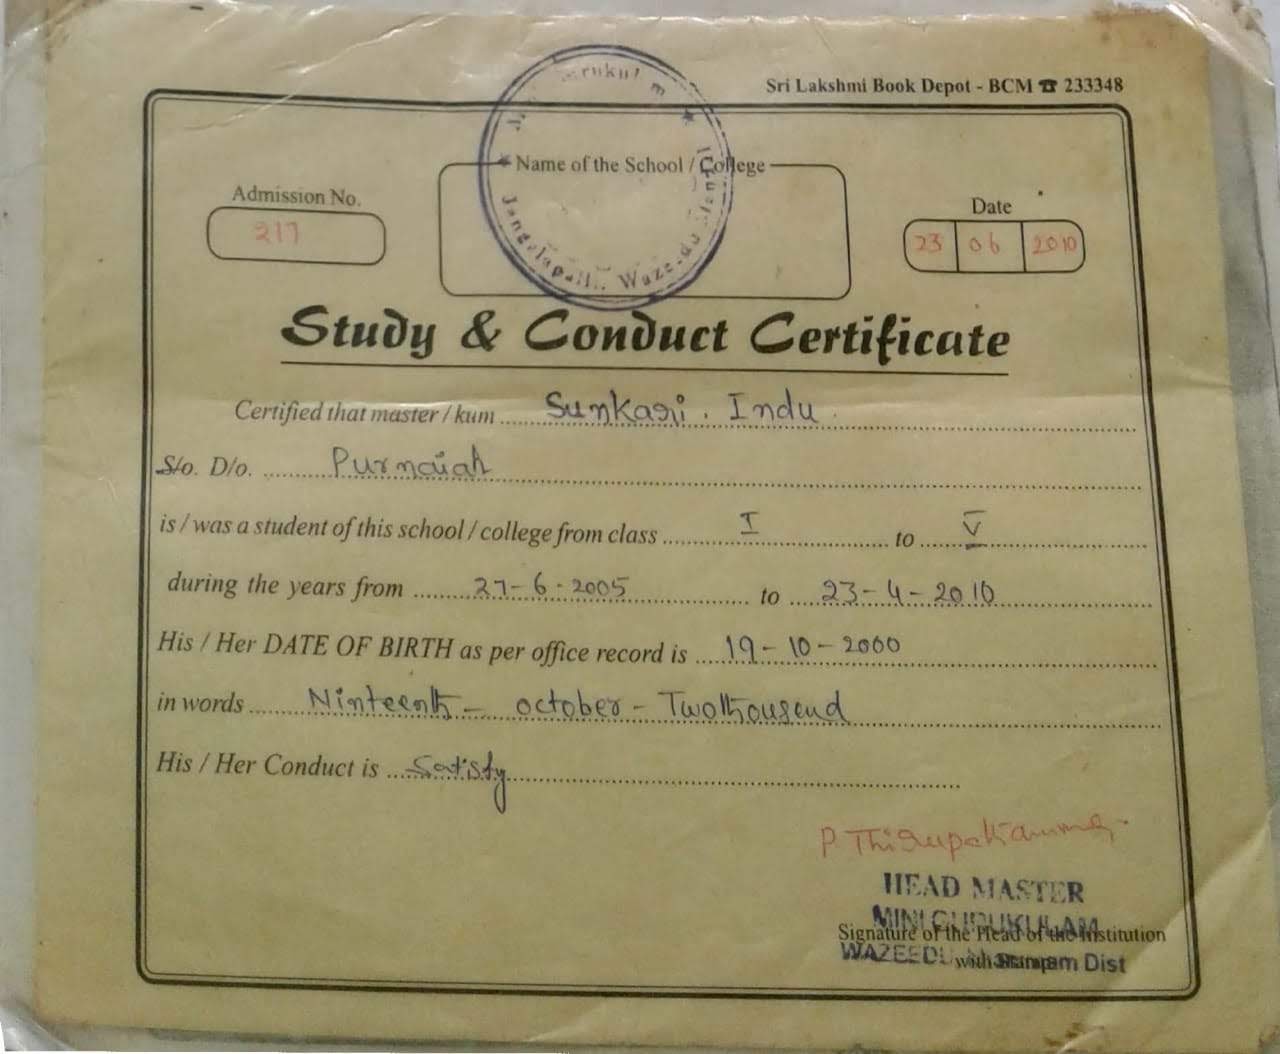 Sri Lakshmi Book Depot - BCM ☎ 233348
Name of the School / College
Jangalapalli, Wazeedu
Admission No.
217
Date
23 06 2010
Study & Conduct Certificate
Certified that master / kum Sunkari . Indu
S/o. D/o. Purnaiah
is / was a student of this school / college from class I to V
during the years from 27-6-2005 to 23-4-2010
His / Her DATE OF BIRTH as per office record is 19-10-2000
in words Ninteenth - october - Twothousend
His / Her Conduct is Satisfy
P. Thirupathamma
HEAD MASTER
MINI GURUKULAM
Signature of the Head of the Institution
WAZEEDU
with Stamp
Dist